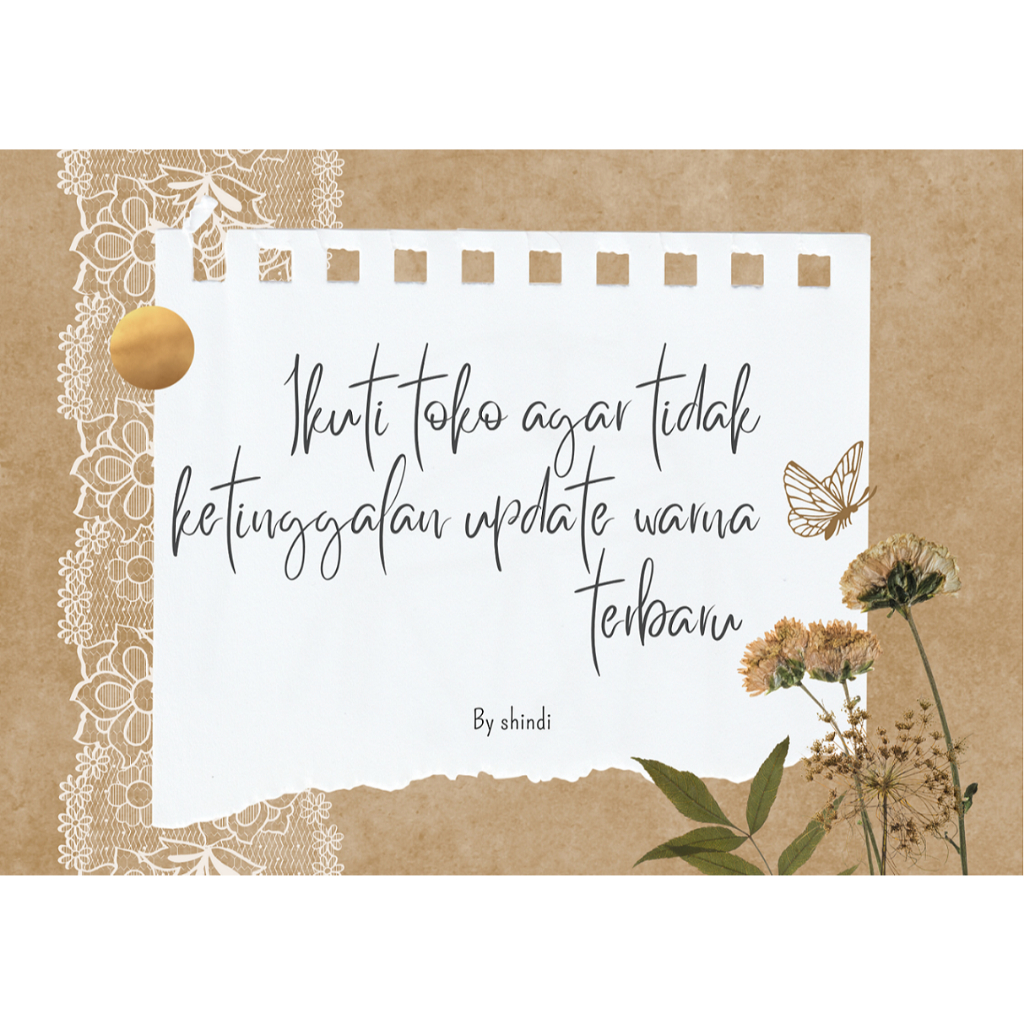 Ikuti toko agar tidak
ketinggalan update warna
terbaru
By shindi